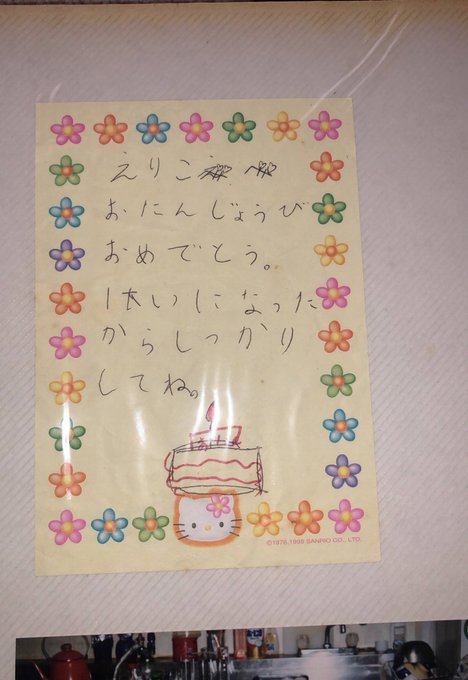 えりこ へ
おたんじょうび
おめでとう。
になった
からしっかり
してね。
©1976,1998 SANRIO CO., LTD.